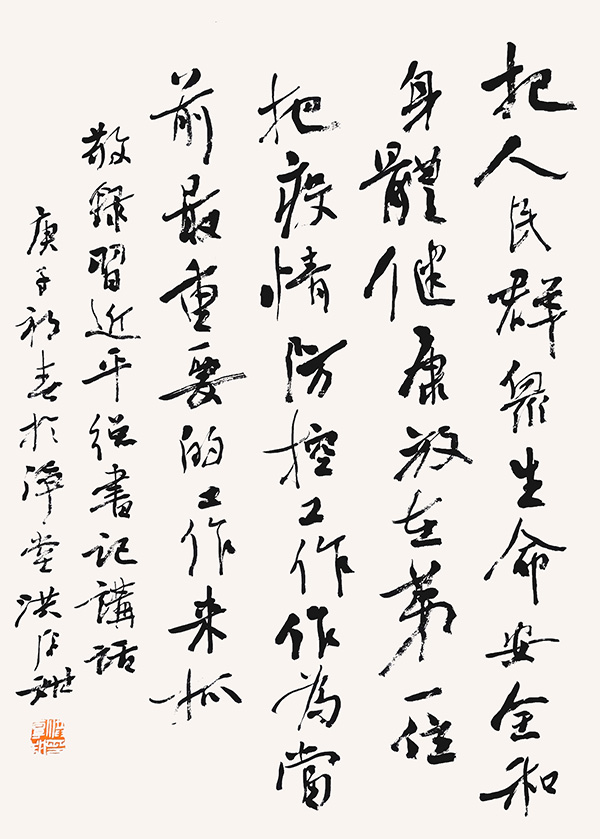 把人民群眾生命安全和
身體健康放在第一位
把疫情防控工作作為當
前最重要的工作来抓
敬録習近平總書記講話
庚子初春於淨堂洪厚甜